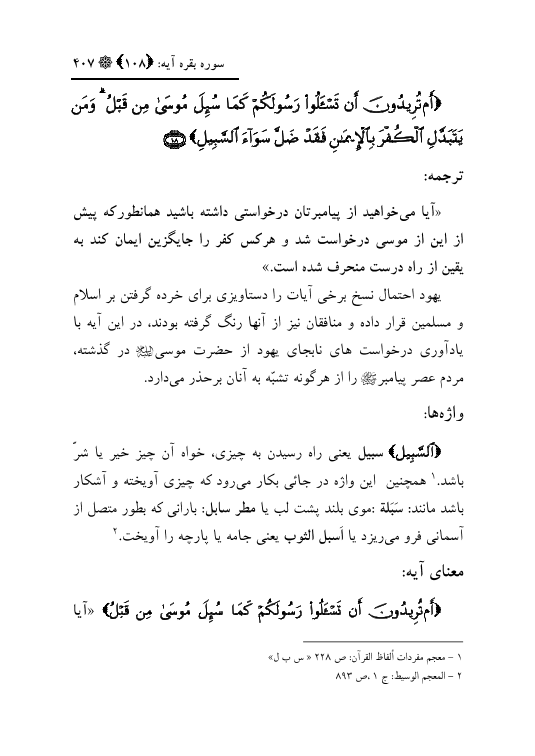 سوره بقره آیه: ﴿۱۰۸﴾ ۴۰۷
﴿أَمْ تُرِيدُونَ أَن تَسْـَٔلُوا۟ رَسُولَكُمْ كَمَا سُئِلَ مُوسَىٰ مِن قَبْلُ ۗ وَمَن
يَتَبَدَّلِ ٱلْكُفْرَ بِٱلْإِيمَـٰنِ فَقَدْ ضَلَّ سَوَآءَ ٱلسَّبِيلِ﴾
ترجمه:
«آیا می‌خواهید از پیامبرتان درخواستی داشته باشید همانطورکه پیش
از این از موسی درخواست شد و هرکس کفر را جایگزین ایمان کند به
یقین از راه درست منحرف شده است.»
یهود احتمال نسخ برخی آیات را دستاویزی برای خرده گرفتن بر اسلام
و مسلمین قرار داده و منافقان نیز از آنها رنگ گرفته بودند، در این آیه با
یادآوری درخواست های نابجای یهود از حضرت موسی در گذشته،
مردم عصر پیامبرﷺ را از هرگونه تشبّه به آنان برحذر می‌دارد.
واژه‌ها:
﴿ٱلسَّبِيلِ﴾ سبیل یعنی راه رسیدن به چیزی، خواه آن چیز خیر یا شرّ
باشد.۱ همچنین این واژه در جائی بکار می‌رود که چیزی آویخته و آشکار
باشد مانند: سَبَلة :موی بلند پشت لب یا مطر سابل: بارانی که بطور متصل از
آسمانی فرو می‌ریزد یا اَسبل الثوب یعنی جامه یا پارچه را آویخت.۲
معنای آیه:
﴿أَمْ تُرِيدُونَ أَن تَسْـَٔلُوا۟ رَسُولَكُمْ كَمَا سُئِلَ مُوسَىٰ مِن قَبْلُ﴾ «آیا
۱ – معجم مفردات ألفاظ القرآن: ص ۲۲۸ « س ب ل»
۲ – المعجم الوسیط: ج ۱ ،ص ۸۹۳